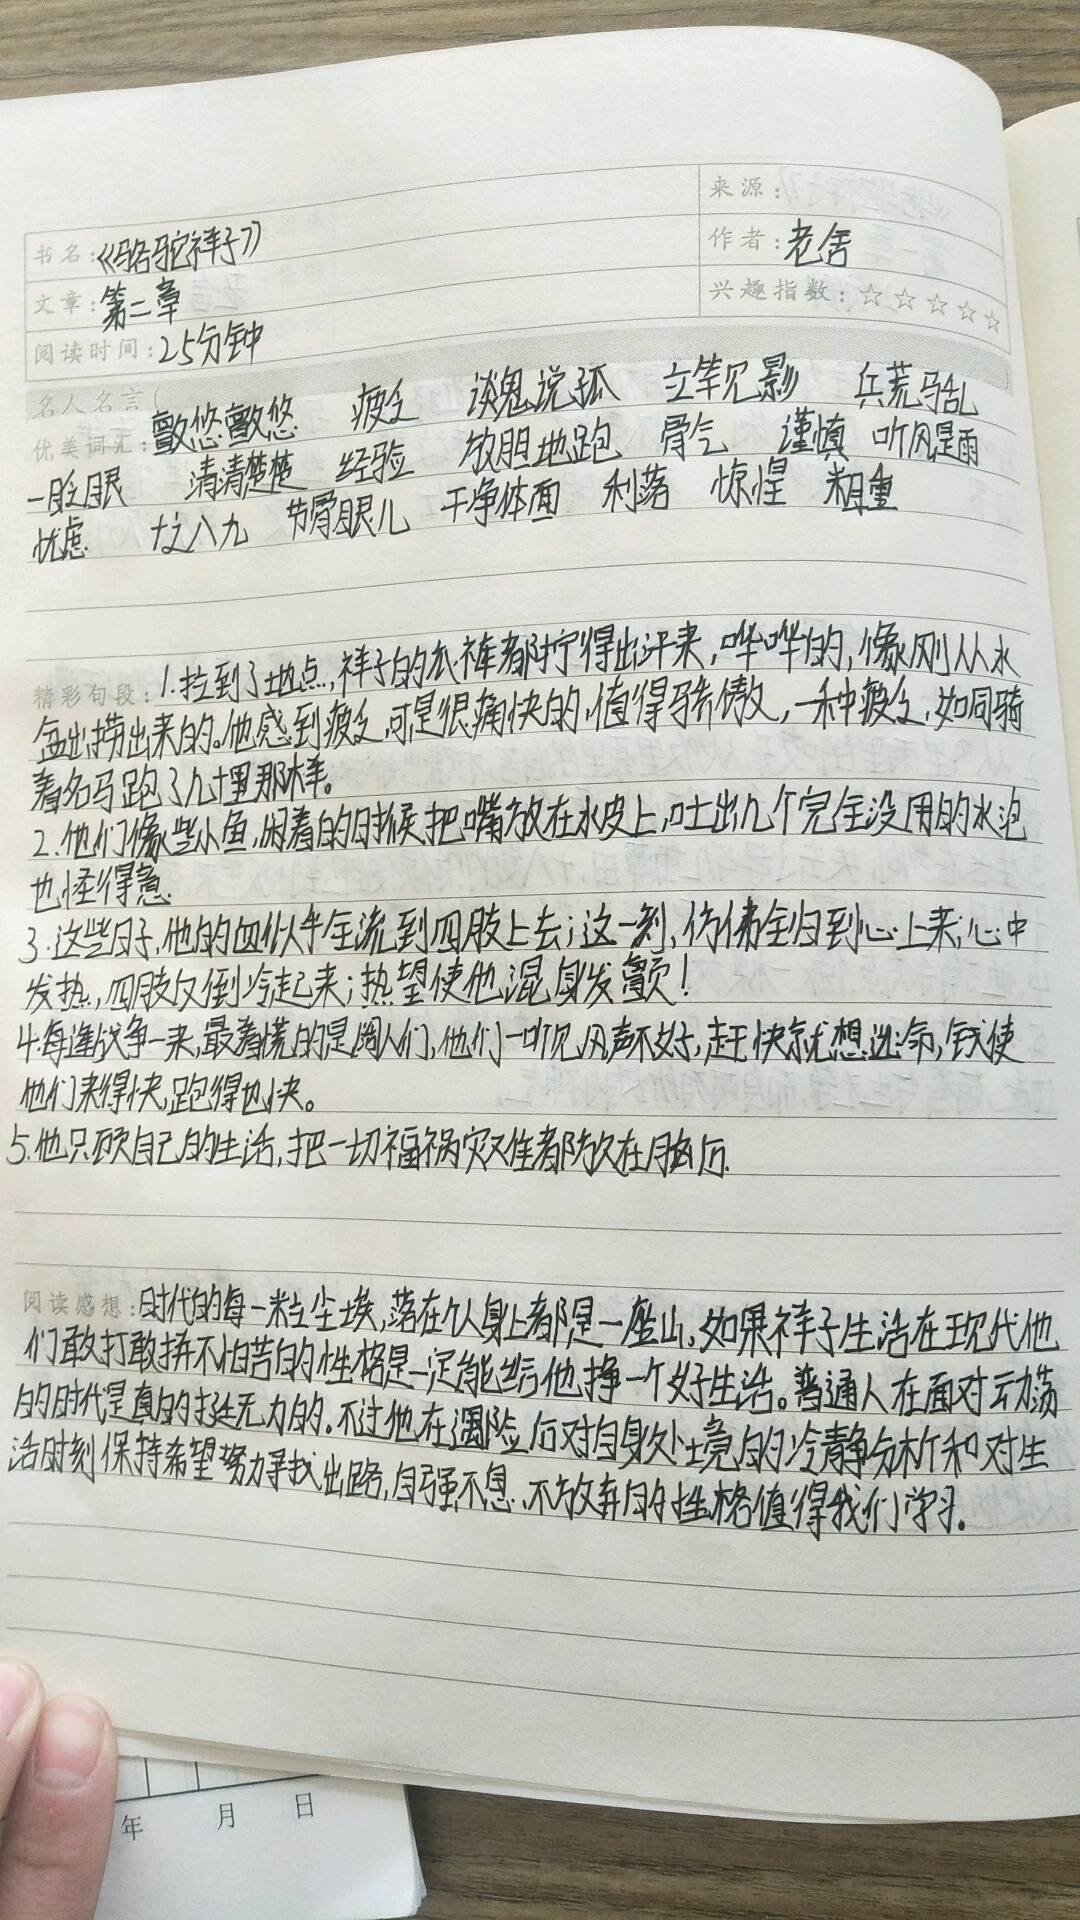 来源:
书名:《骆驼祥子》
作者:老舍
文章:第二章
兴趣指数:☆☆☆☆☆
阅读时间:25分钟
名人名言
优美词汇:敼悠敼悠 疲乏 谈鬼说狐 立竿见影 兵荒马乱
一眨眼 清清楚楚 经验 放胆地跑 骨气 谨慎 听风是雨
忧虑 十之八九 节骨眼儿 干净体面 利落 惊惶 粗重
精彩句段:1.拉到了地点,祥子的衣裤都拧得出汗来,哗哗的,像刚从水
盆出捞出来的。他感到疲乏,可是很痛快的,值得骄傲,一种疲乏,如同骑
着名马跑了几十里那样。
2.他们像些小鱼,闲着的时候把嘴放在水皮上,吐出几个完全没用的水泡
也怪得意.
3.这些日子,他的血似乎全流到四肢上去;这一刻,仿佛全归到心上来;心中
发热,四肢反倒冷起来;热望使他混身发颤!
4.每逢战争一来,最着慌的是阔人们,他们一听见风声不好,赶快就想逃命,钱使
他们来得快,跑得也快。
5.他只顾自己的生活,把一切福祸灾难都放在脑后.
阅读感想:时代的每一粒尘埃,落在个人身上都是一座山。如果祥子生活在现代他
们敢打敢拼不怕苦的性格是一定能给他挣一个好生活。普通人在面对动荡
的时代是真的挺无力的。不过他在遇险后对自身处境的冷静分析和对生
活时刻保持希望努力寻找出路,自强不息.不放弃的性格值得我们学习。
年 月 日